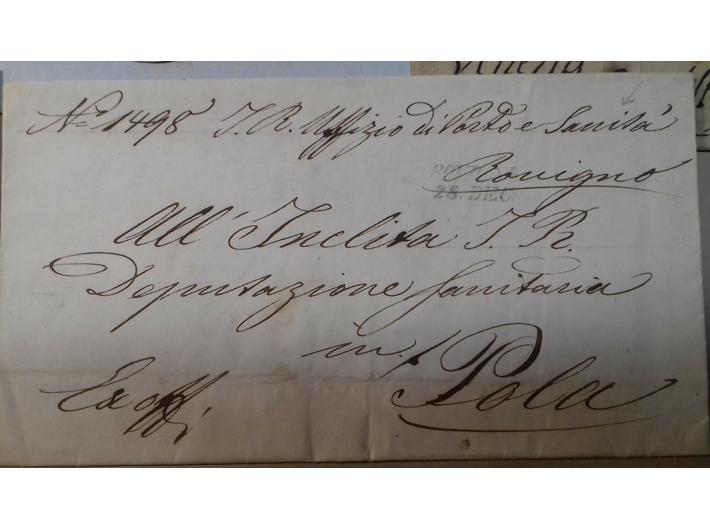 No 1498 I. R. Uffizio di Porto e Sanità
Rovigno
28. DEC.
All' Inclita I. R.
Deputazione Sanitaria
in
Pola
Ex offi